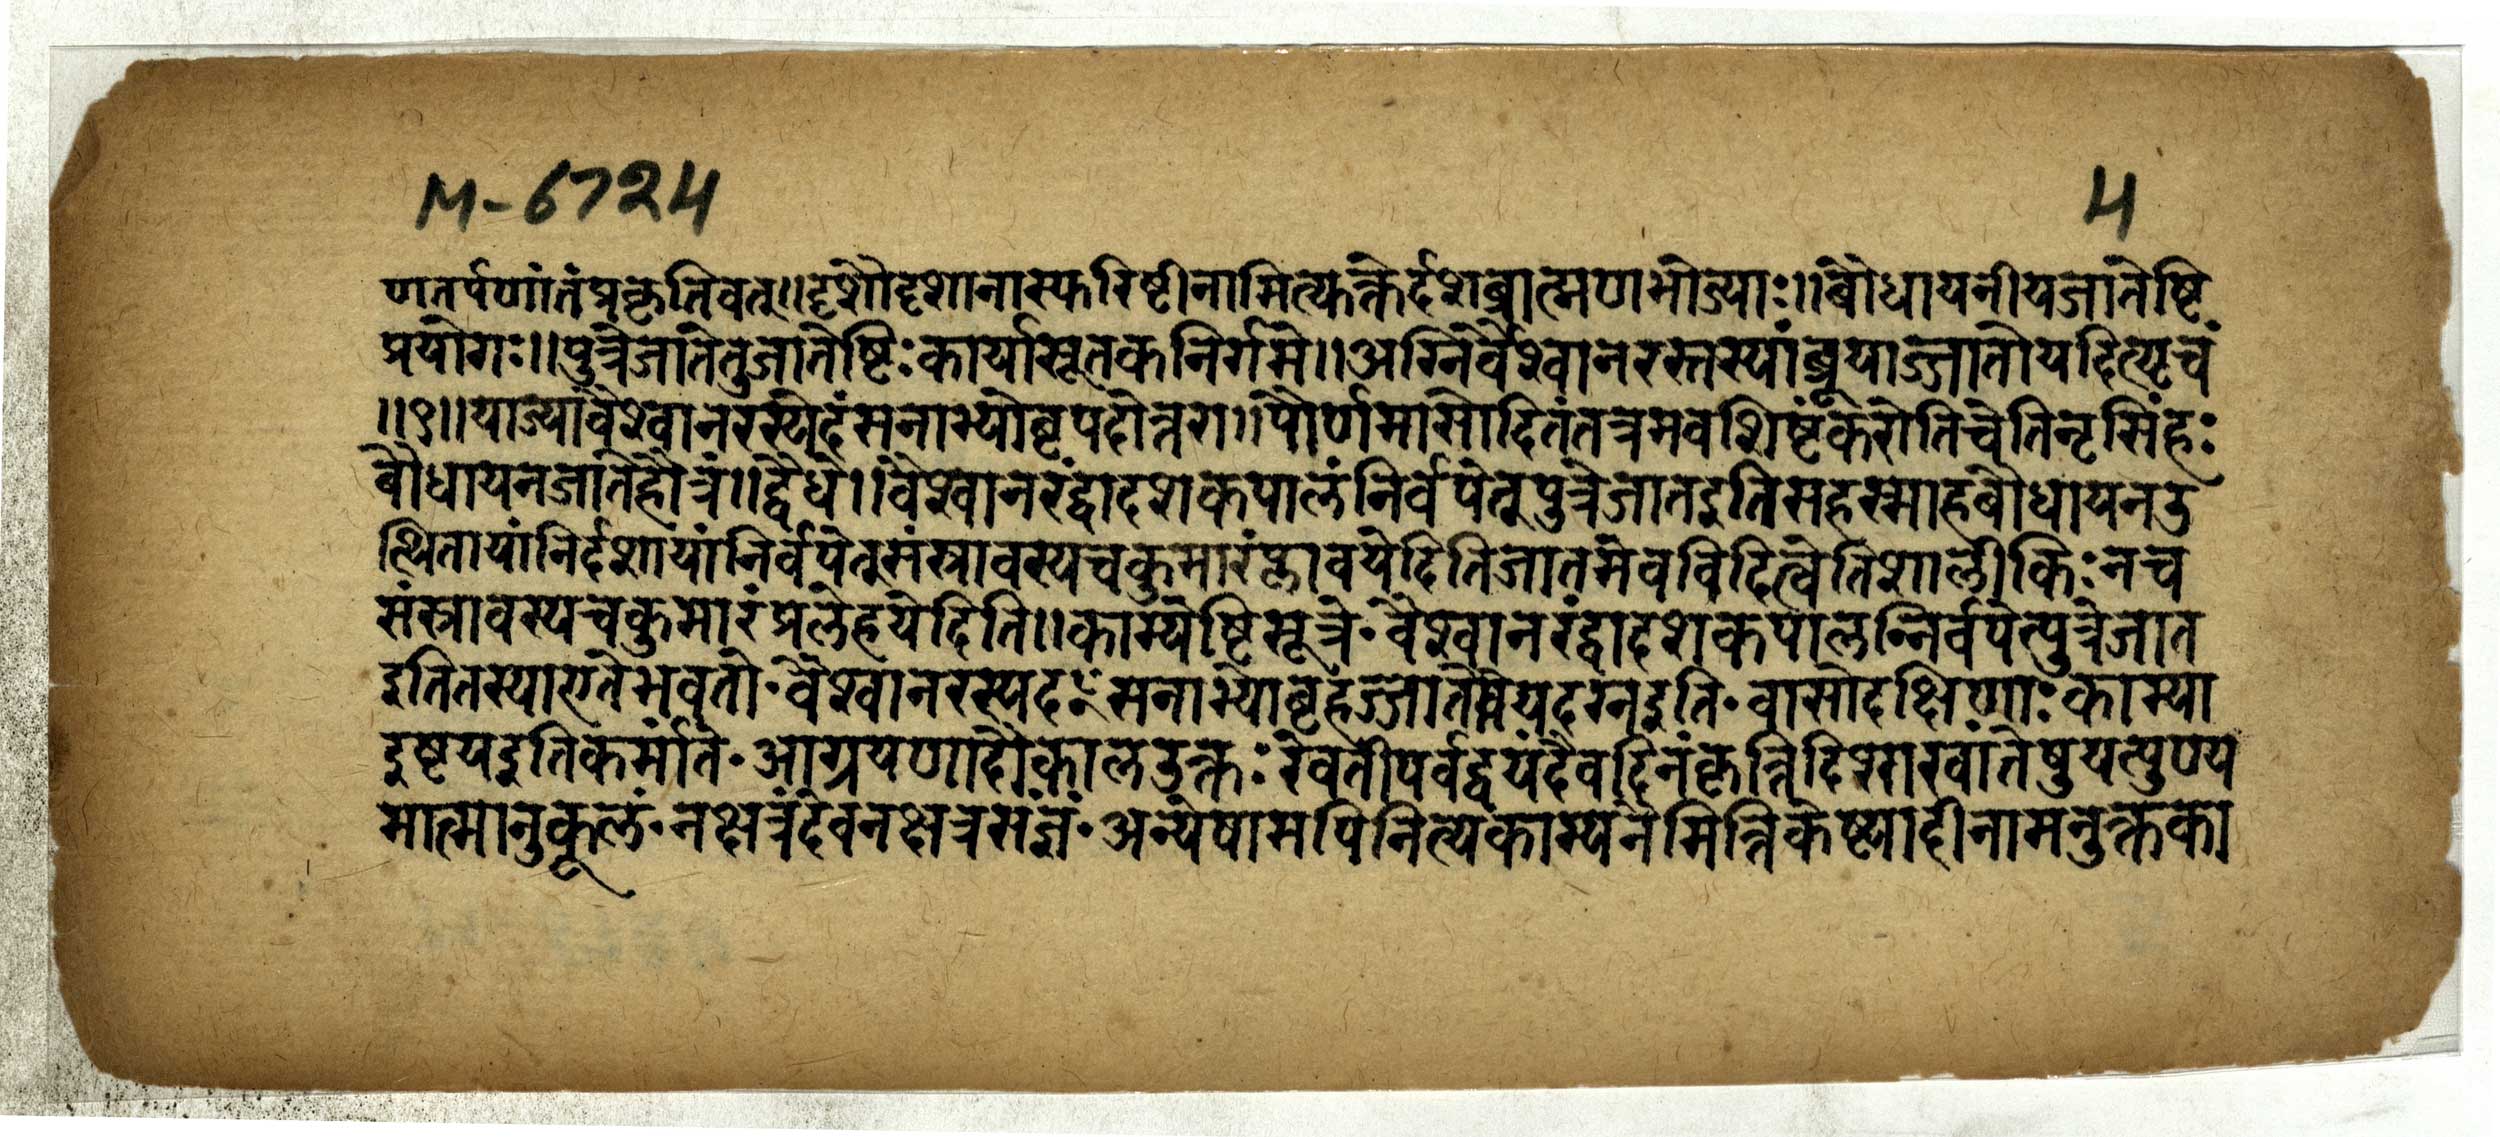 M-6724
4
णतर्पणांतंप्रकृतिवत्॥दृशौदृशानास्फरिष्टीनामित्यक्तेर्दशब्रात्मणभोज्याः॥बौधायनीयजातेष्टि
प्रयोगः॥पुत्रेजातेतुजातेष्टिःकार्यासूतकनिर्गमे॥अग्निर्वैश्वानरस्तस्यांब्रूयाज्जातोयदित्यृचं
॥९॥याज्यावैश्वानरस्येहंसनाभ्योबृपदोत्तरा॥पौर्णमासोदितंतत्रमवशिष्टंकरोतिचेतिनृसिंहः
बौधायनजातेहौत्रं॥द्वैधे॥वैश्वानरंद्वादशकपालंनिर्वपेत्पुत्रेजातइतिसहस्माहबौधायनउ
त्थितायांनिर्दशायांनिर्वपेत्संस्त्रावस्यचकुमारंप्लावयेदितिजातमेवविदित्वेतिशालीकिःनच
संस्त्रावस्यचकुमारंप्रलेहयेदिति॥काम्येष्टिसूत्रे·वैश्वानरंद्वादशकपालन्निर्वपेत्पुत्रेजात
इतितस्याएतेभवतो·वैश्वानरस्यदꣳसनाभ्योबृहज्जातोयदग्नइति·वासोदक्षिणाःकाम्या
इष्टयइतिकर्मांते·आग्रयणादौकालउक्तःरेवतीपर्वद्वयंदैवदिनंकृत्तिदिशाखांतेषुयत्पुण्य
मात्मानुकूलं·नक्षत्रंदेवनक्षत्रसंज्ञं·अन्येषामपिनित्यकाम्यनैमित्तिकेष्ट्यादीनामनुक्तका